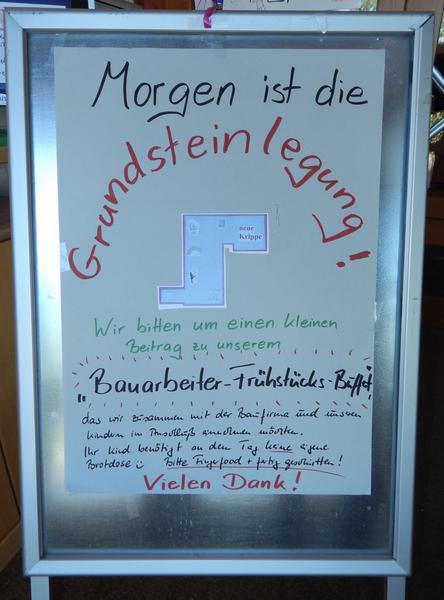 Morgen ist die
Grundsteinlegung!
neue
Krippe
Wir bitten um einen kleinen
Beitrag zu unserem
"Bauarbeiter-Frühstücks-Büffet"
das wir zusammen mit der Baufirma und unseren
Kindern im Anschluß einnehmen möchten.
Ihr Kind benötigt an dem Tag keine eigene
Brotdose Bitte Fingerfood + fertig geschnitten!
Vielen Dank!